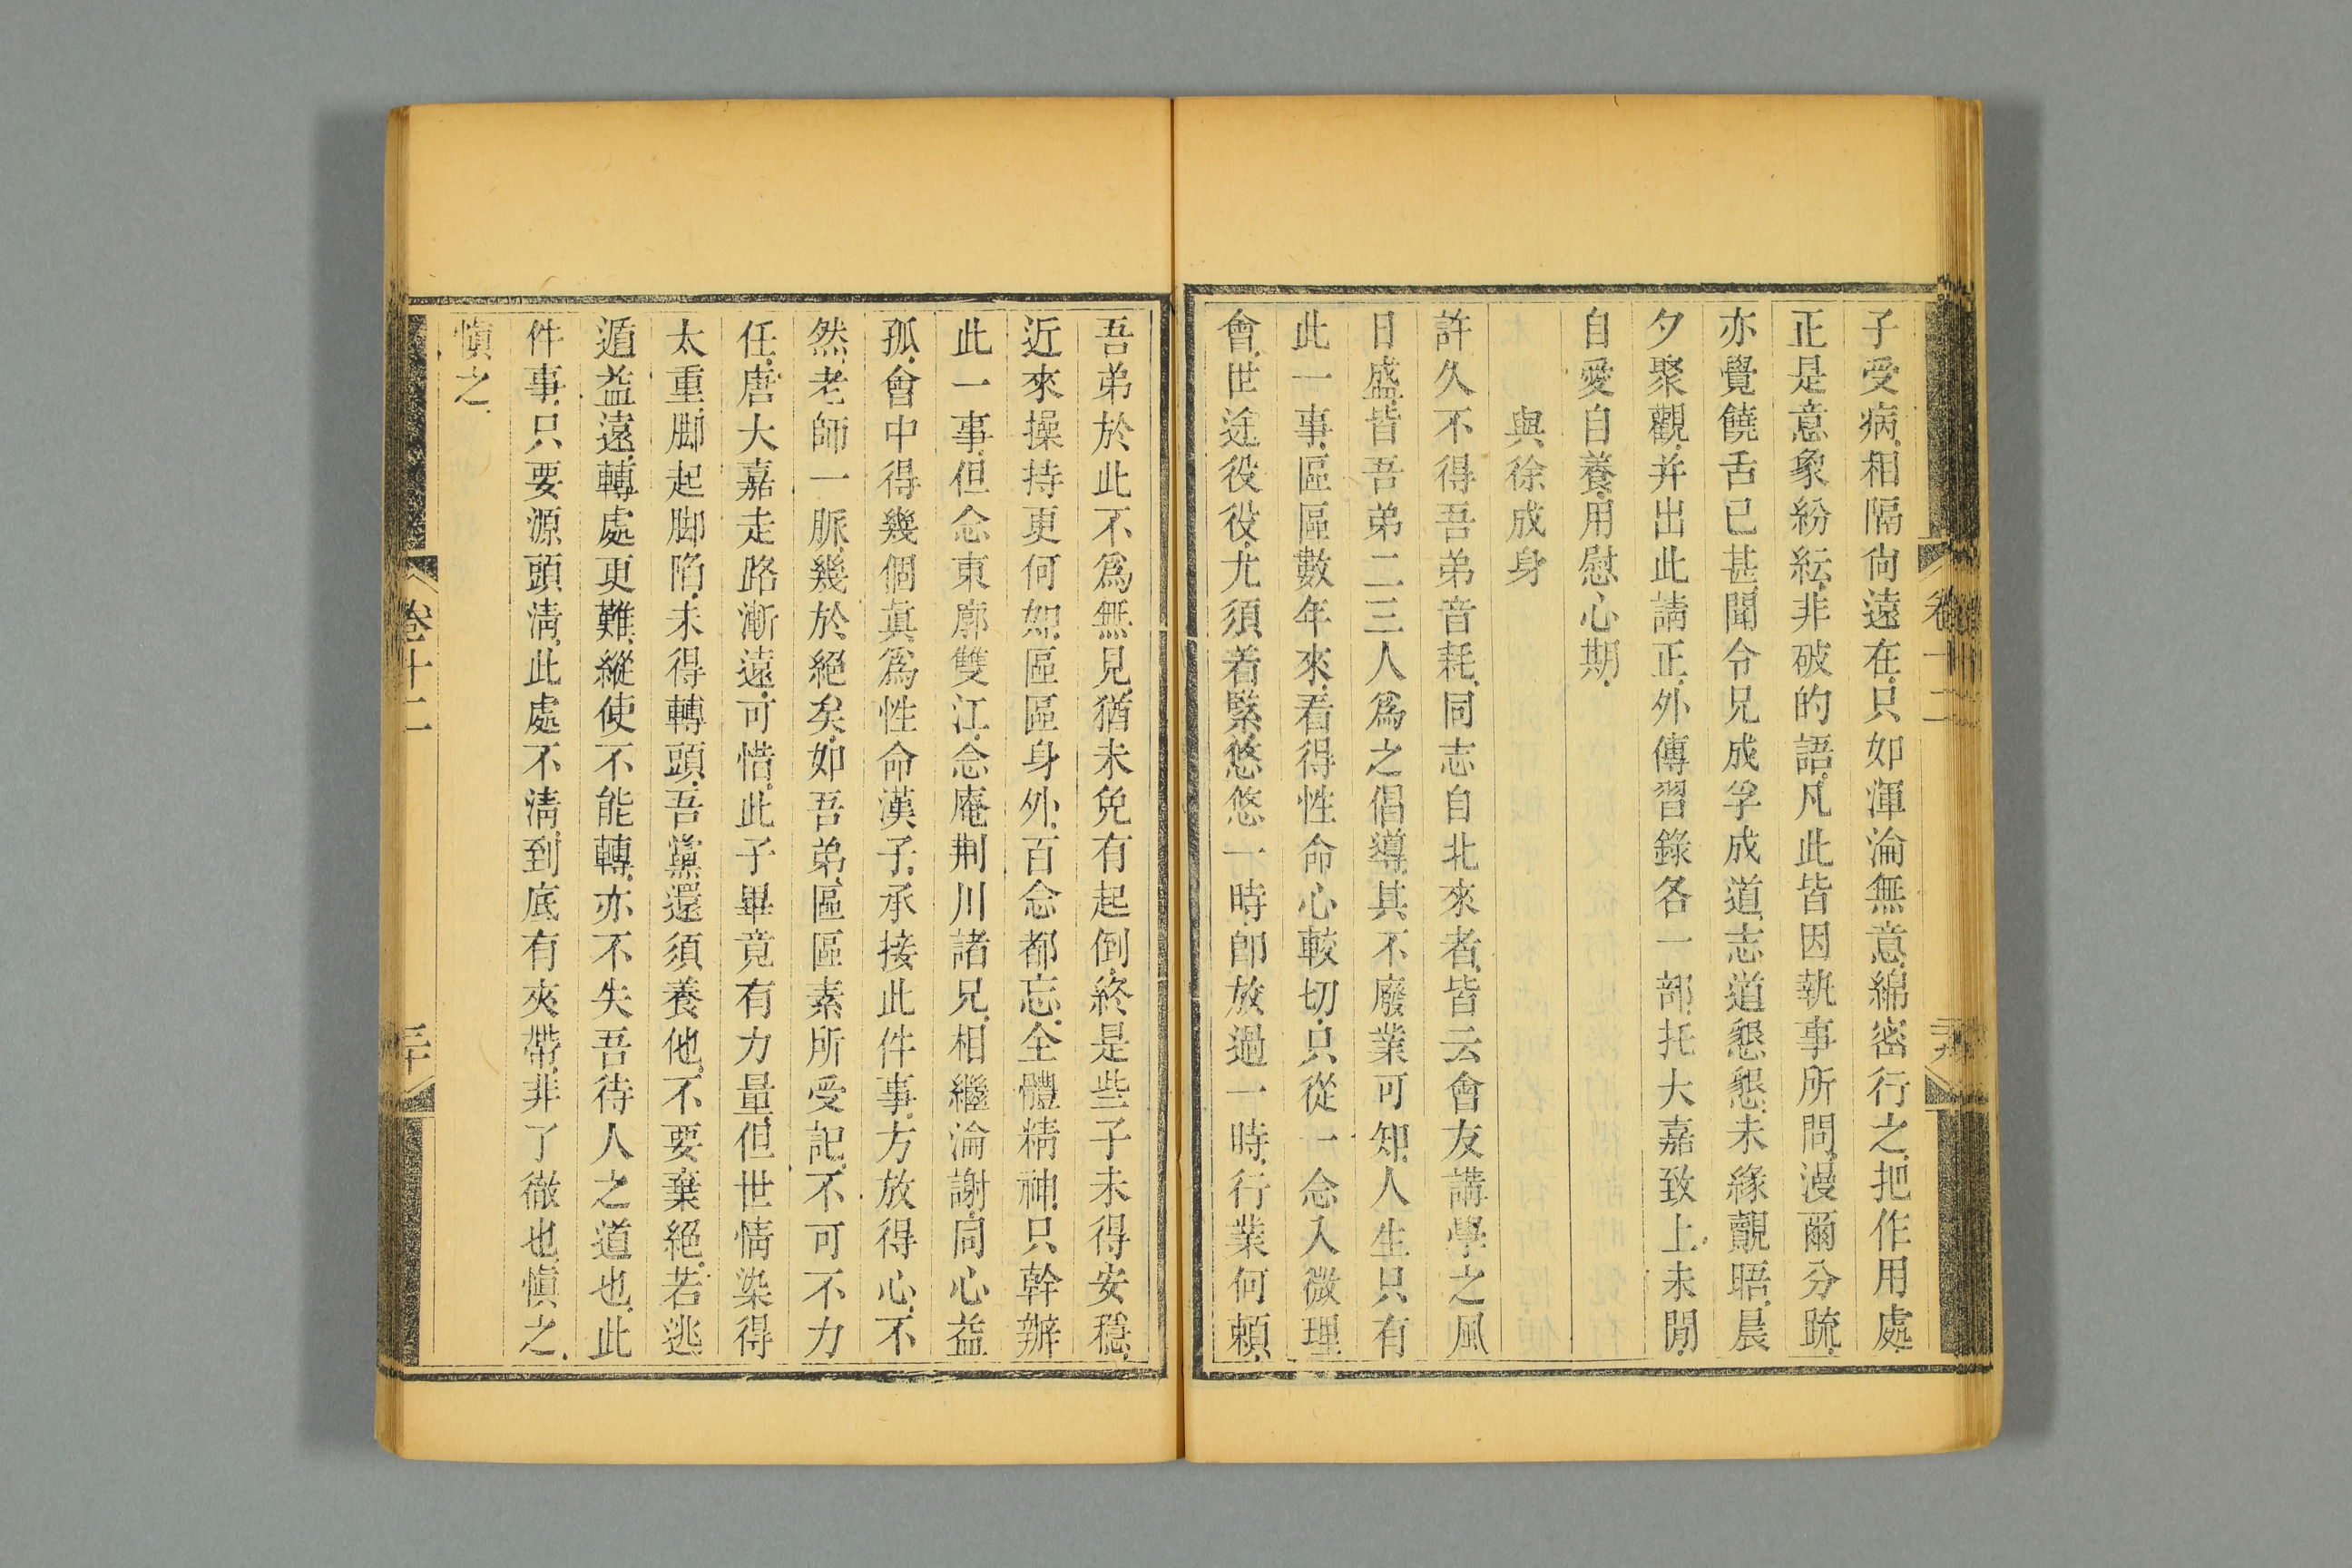 子受病相隔尙遠在只如渾淪無意綿密行之把作用處
正是意象紛紜非破的語凡此皆因執事所問漫爾分疏
亦覺饒舌已甚聞令兄成孚成道志道懇懇未緣覿晤晨
夕聚觀并出此請正外傳習錄各一部托大嘉致上未閒
自愛自養用慰心期
與徐成身
許久不得吾弟音耗同志自北來者皆云會友講學之風
日盛皆吾弟二三人爲之倡導其不廢業可知人生只有
此一事區區數年來看得性命心較切只從一念入微理
會世途役役尤須着緊悠悠一時卽放過一時行業何賴
吾弟於此不爲無見猶未免有起倒終是些子未得安穩
近來操持更何如區區身外百念都忘全體精神只幹辦
此一事但念東廓雙江念庵荆川諸兄相繼淪謝同心益
孤會中得幾個眞爲性命漢子承接此件事方放得心不
然老師一脈幾於絕矣如吾弟區區素所受記不可不力
任唐大嘉走路漸遠可惜此子畢竟有力量但世情染得
太重脚起脚陷未得轉頭吾黨還須養他不要棄絕若逃
遁益遠轉處更難縱使不能轉亦不失吾待人之道也此
件事只要源頭淸此處不淸到底有夾帶非了徹也愼之
愼之
卷十二
三十